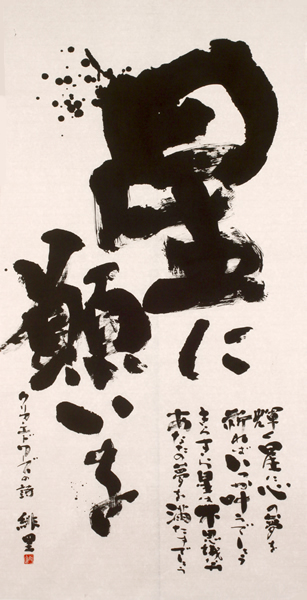 星に
願いを
輝く星に心の夢を
祈ればいつか叶うでしょう
きらきら星は不思議
あなたの夢を満たすでしょう
クリフ・エドワーズの詩